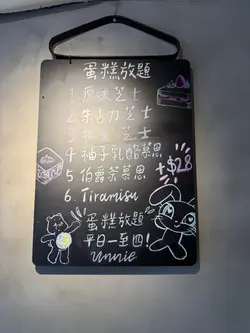 蛋糕放題
1. 原味芝士
2. 朱古力芝士
3. 芝士
4. 柚子乳酪慕思
5. 伯爵茶慕思
+$28
6. Tiramisu
蛋糕放題
平日一至四!
unnie